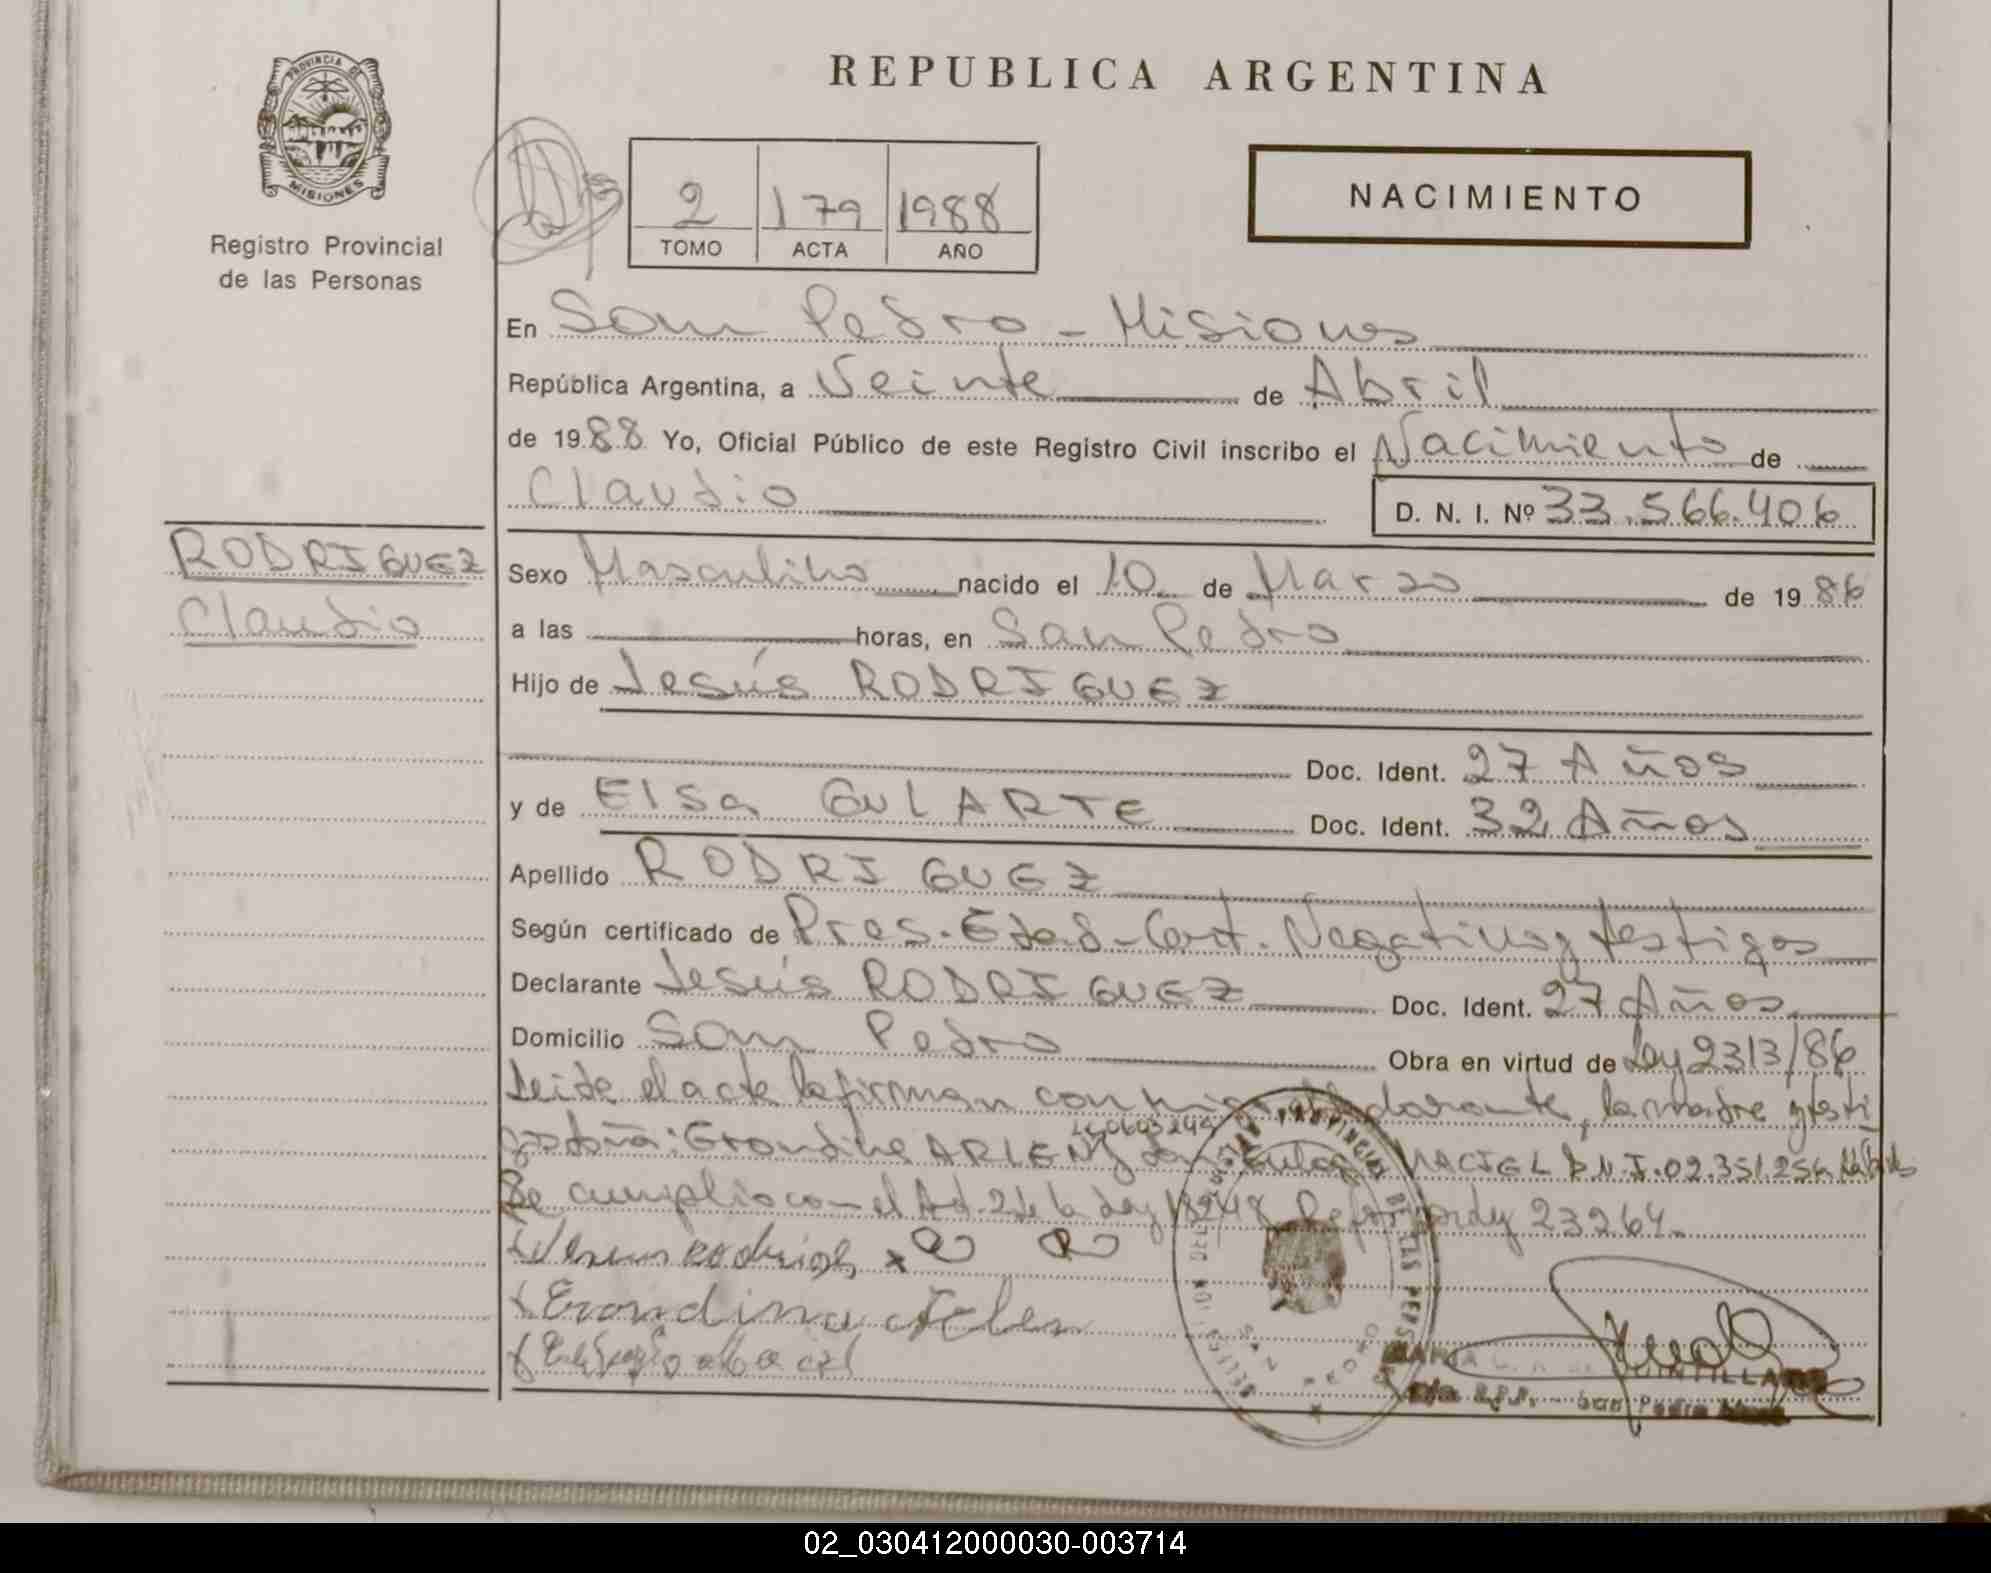 PROVINCIA DE
MISIONES
Registro Provincial
de las Personas
REPUBLICA ARGENTINA
2 179 1988
TOMO ACTA AÑO
NACIMIENTO
En San Pedro - Misiones
República Argentina, a Veinte de Abril
de 1988 Yo, Oficial Público de este Registro Civil inscribo el Nacimiento de
Claudio D. N. I. Nº 33.566.406
RODRIGUEZ
Claudio
Sexo Masculino nacido el 10 de Marzo de 1986
a las horas, en San Pedro
Hijo de Jesús RODRIGUEZ
Doc. Ident. 27 Años
y de Elsa GULARTE Doc. Ident. 32 Años
Apellido RODRIGUEZ
Según certificado de Pres. Edad - Cert. Negativo y testigos
Declarante Jesús RODRIGUEZ Doc. Ident. 27 Años
Domicilio San Pedro Obra en virtud de Ley 2313/86
Leida el acta la firman conmigo el declarante, la madre y testi
MACIEL D.N.I. 02.351.256
Se cumplio con el Art. 2 de la Ley 18248 Ley 23264.
SAN PEDRO
San Pedro
02_030412000030-003714